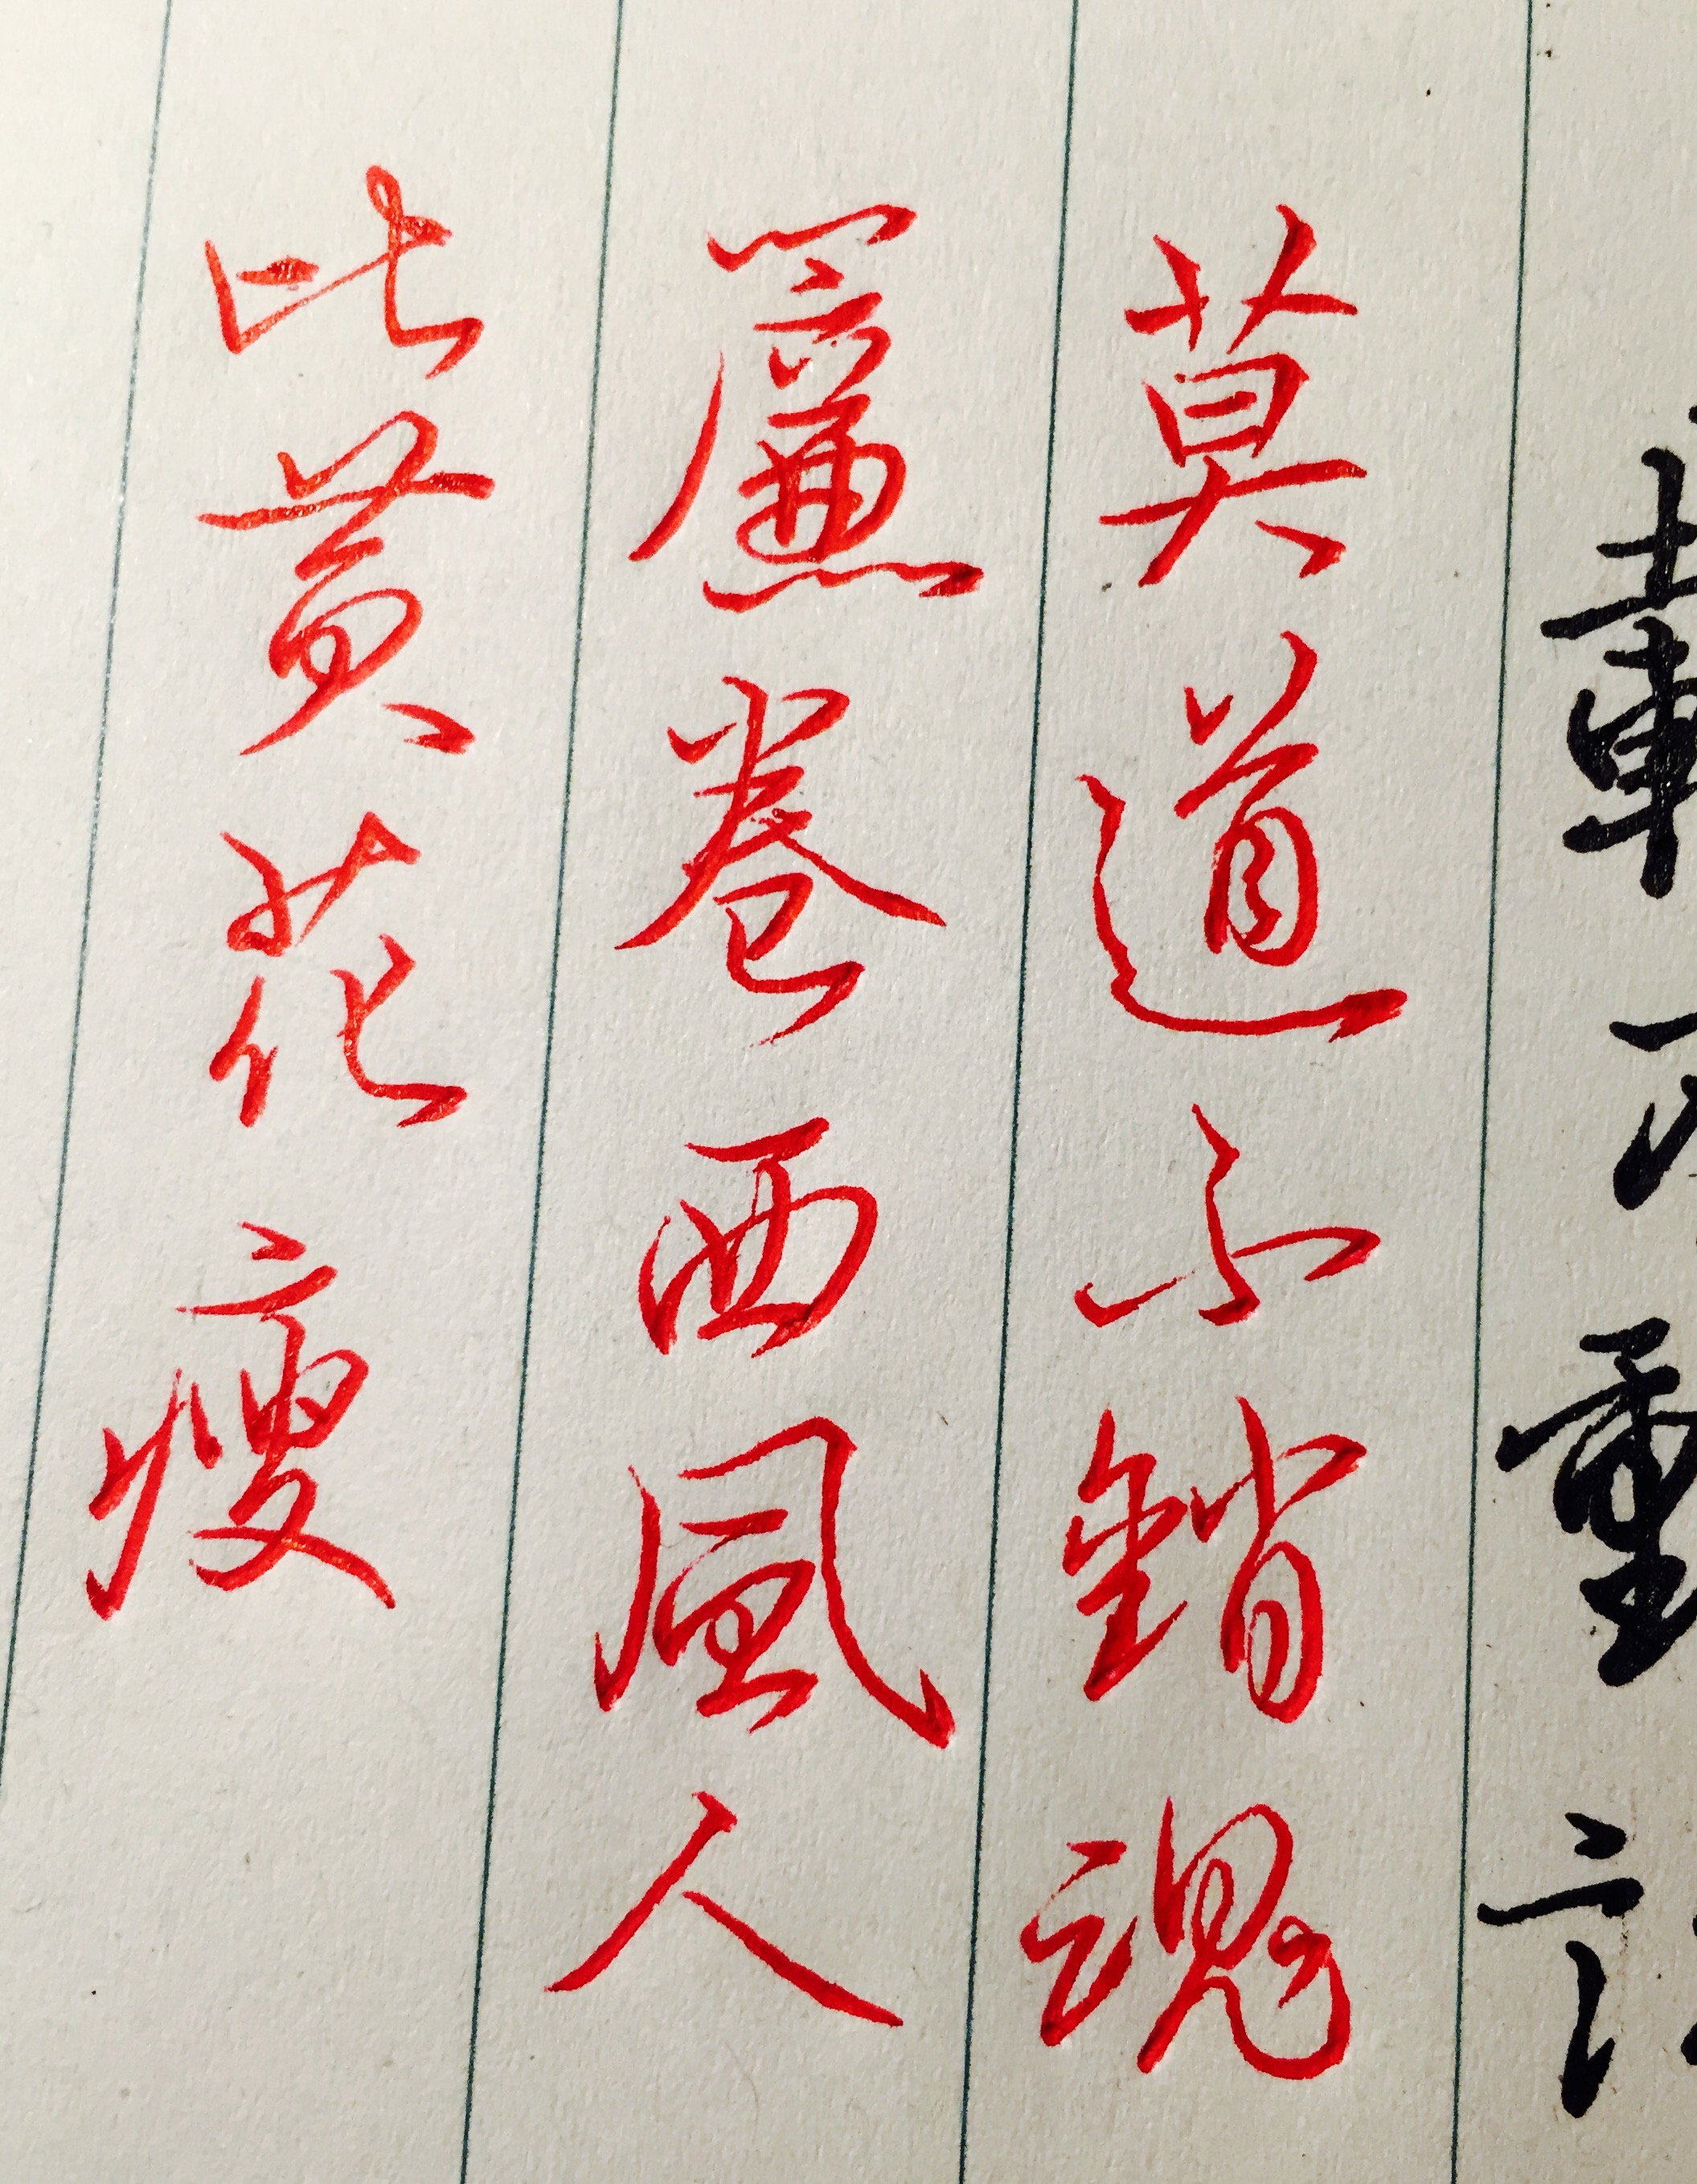 重
莫道不銷魂
簾卷西風人
比黃花瘦